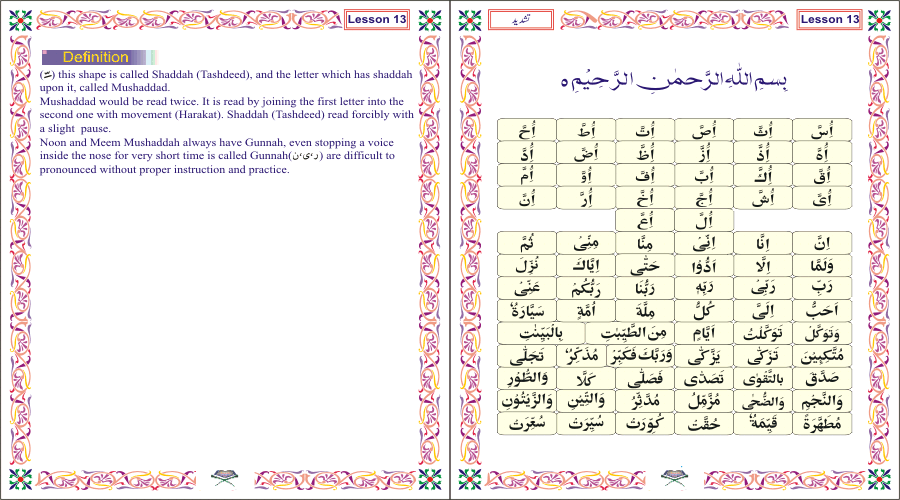 Lesson 13
Definition
(ـّـ) this shape is called Shaddah (Tashdeed), and the letter which has shaddah
upon it, called Mushaddad.
Mushaddad would be read twice. It is read by joining the first letter into the
second one with movement (Harakat). Shaddah (Tashdeed) read forcibly with
a slight pause.
Noon and Meem Mushaddad always have Gunnah, even stopping a voice
inside the nose for very short time is called Gunnah(ر،ی،ن) are difficult to
pronounced without proper instruction and practice.
تشدید
Lesson 13
بِسمِ اللهِ الرَّحمٰنِ الرَّحِيُمِ ه
اُسَّ اُثَّ اُصَّ اُتَّ اُطَّ اُحَّ
اُهَّ اُذَّ اُزَّ اُظَّ اُضَّ اُدَّ
اُقَّ اُكَّ اُبَّ اُفَّ اُوَّ اُمَّ
اُىَّ اُشَّ اُجَّ اُخَّ اُرَّ اُنَّ
اُلَّ اُعَّ
اِنَّ اِنَّا اِنِّىْ مِنَّا مِنِّىْ ثُمَّ
وَلَمَّا اِلَّا اَدُّوْا حَتّٰى اِيَّاكَ نُزِّلَ
رَبِّ رَبِّىْ رَبِّهٖ رَبُّنَا رَبُّكُمْ عَنِّىْ
اَحَبُّ اِلَىَّ كُلُّ مِلَّةَ اُمَّةٍ سَيَّارَةٌ
وَتَوَكَّلْ تَوَكَّلْتُ اَيَّامٍ مِنَ الطَّيِّبٰتِ بِالْبَيِّنٰتِ
مُتَّكِـِٕيْنَ تَزَكّٰى يَزَّكّٰى وَرَبَّكَ فَكَبِّرْ مُذَكِّرٌ تَجَلّٰى
صَدَّقَ بِالتَّقْوٰى تَصَدّٰى فَصَلّٰى كَلَّا وَالطُّوْرِ
وَالنَّجْمِ وَالضُّحٰى مُزَّمِّلُ مُدَّثِّرُ وَالتِّيْنِ وَالزَّيْتُوْنِ
مُطَهَّرَةً قَيِّمَةٌ حُقَّتْ كُوِّرَتْ سُيِّرَتْ سُعِّرَتْ